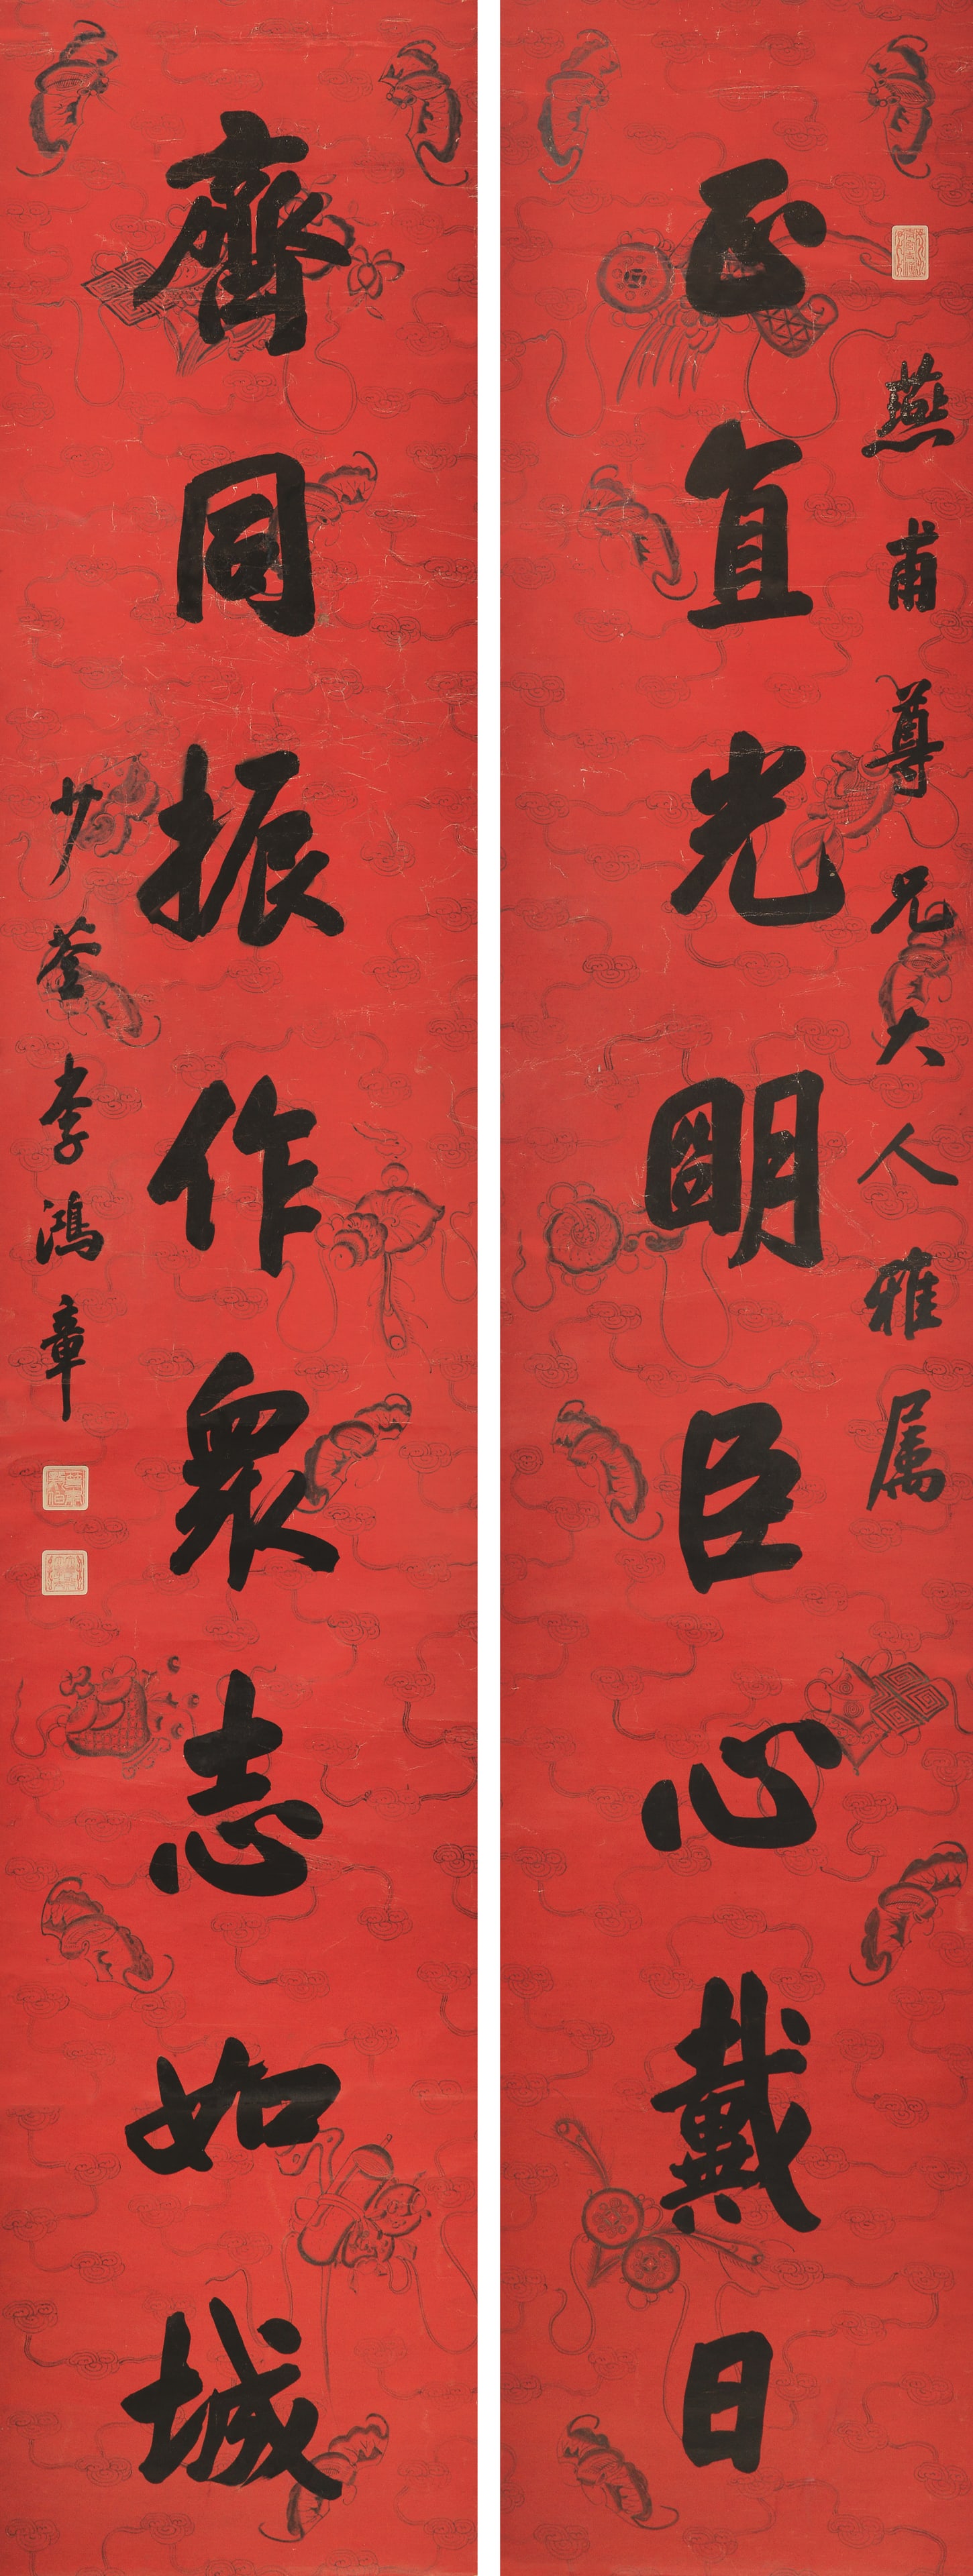 燕甫尊兄大人雅属
正直光明臣心戴日
齊同振作衆志如城
少荃李鴻章